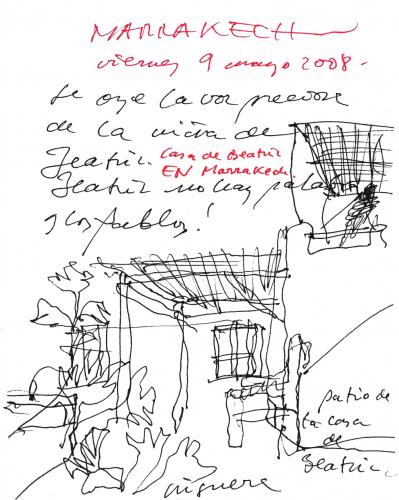 MARRAKECH
viernes 9 mayo 2008.
Se oye la voz
de la niña de
Beatriz. Casa de Beatriz
EN Marrakech.
Beatriz no hay
y los pueblos!
patio de
la casa
de
Beatriz.